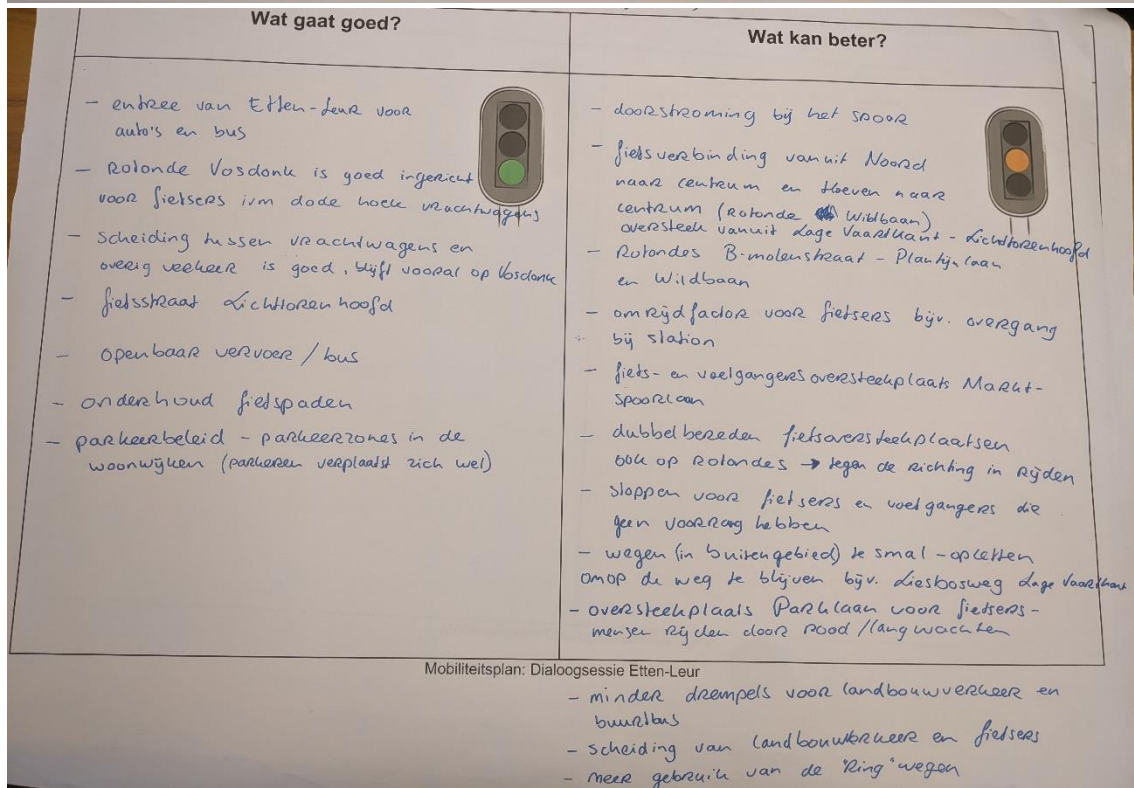 Wat gaat goed?
- entree van Etten-Leur voor
auto's en bus
- Rotonde Vosdonk is goed ingericht
voor fietsers ivm dode hoek vrachtwagens
- scheiding tussen vrachtwagens en
overig verkeer is goed, blijft vooral op Vosdonk
- fietsstraat Lichttorenhoofd
- openbaar vervoer / bus
- onderhoud fietspaden
- parkeerbeleid - parkeerzones in de
woonwijken (parkeren verplaatst zich wel)
Wat kan beter?
- doorstroming bij het spoor
- fietsverbinding vanuit Noord
naar centrum en Hoeven naar
centrum (Rotonde Wildbaan)
oversteek vanuit Lage Vaartkant - Lichttorenhoofd
- Rotondes B-molenstraat - Plantijnlaan
en Wildbaan
- omrijdfactor voor fietsers bijv. overgang
bij station
- fiets- en voetgangersoversteekplaats Markt-
spoorlaan
- dubbelbereden fietsoversteekplaatsen
ook op Rotondes → tegen de richting in rijden
- stoppen voor fietsers en voetgangers die
geen voorrang hebben
- wegen (in buitengebied) te smal - opletten
om op de weg te blijven bijv. Liesbosweg Lage Vaartkant
- oversteekplaats Parklaan voor fietsers -
mensen rijden door rood / lang wachten
Mobiliteitsplan: Dialoogsessie Etten-Leur
- minder drempels voor landbouwverkeer en
buurtbus
- scheiding van landbouwverkeer en fietsers
- meer gebruik van de "Ring" wegen